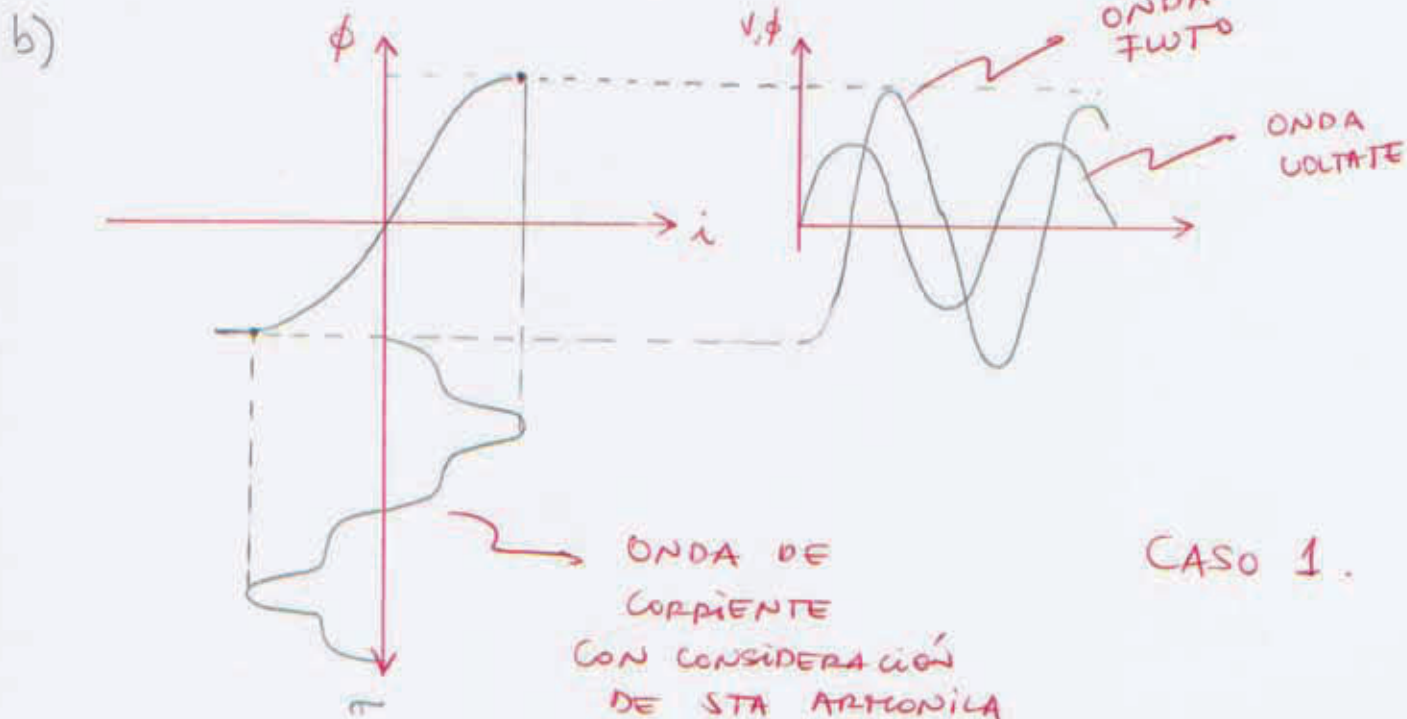 b)
ϕ
i
V,ϕ
ONDA
FLUJO
ONDA
VOLTAJE
ONDA DE
CORRIENTE
CON CONSIDERACIÓN
DE 5TA ARMONICA
CASO 1.